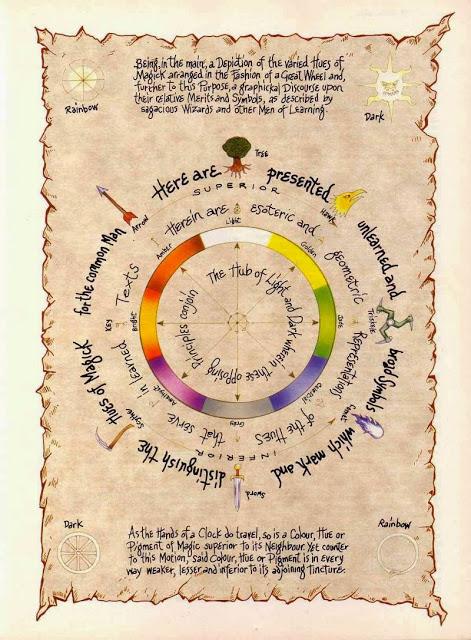 Being, in the main, a Depiction of the varied Hues of
Magick arranged in the fashion of a Great Wheel and,
further to this Purpose, a graphickal Discourse upon
their relative Merits and Symbols, as described by
sagacious Wizards and other Men of Learning.
Rainbow
Dark
Tree
Hawk
Comet
Sword
Scythe
Key
Arrow
Here are presented unlearned and broad Symbols which mark and distinguish the Hues of Magick for the common Man
SUPERIOR
INFERIOR
Herein are esoteric and geometric Representations of the HUES that serve in learned Texts
Light
Golden
Jade
Celestial
Grey
Amethyst
Bright
Amber
The Hub of Light and Dark wherein these opposing Principles conjoin
Dark
Rainbow
As the Hands of a Clock do travel, so is a Colour, Hue or
Pigment of Magic superior to its Neighbour. Yet counter
to this Motion, said Colour, Hue or Pigment is in every
way weaker, lesser and inferior to its adjoining Tincture.